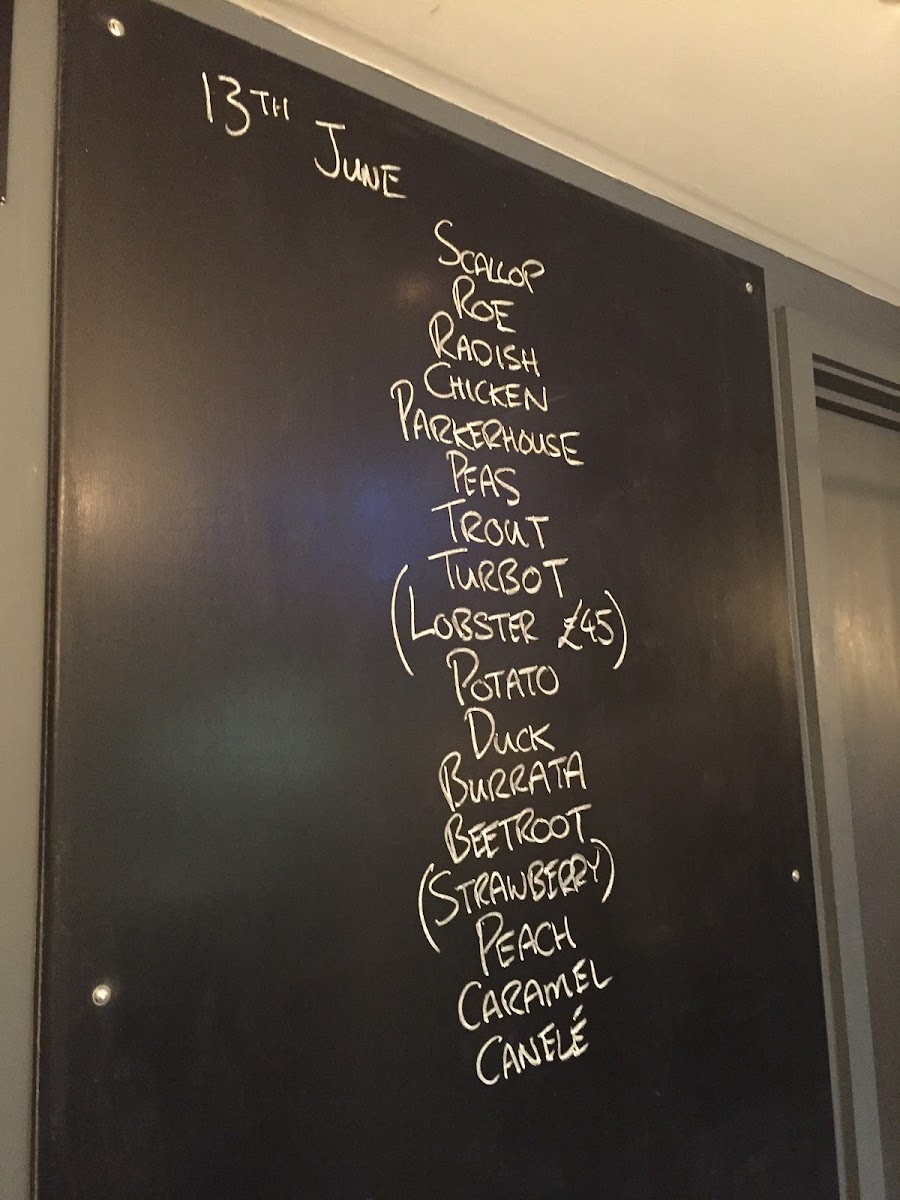 13TH JUNE
SCALLOP
ROE
RADISH
CHICKEN
PARKERHOUSE
PEAS
TROUT
TURBOT
(LOBSTER £45)
POTATO
DUCK
BURRATA
BEETROOT
(STRAWBERRY)
PEACH
CARAMEL
CANELÉ